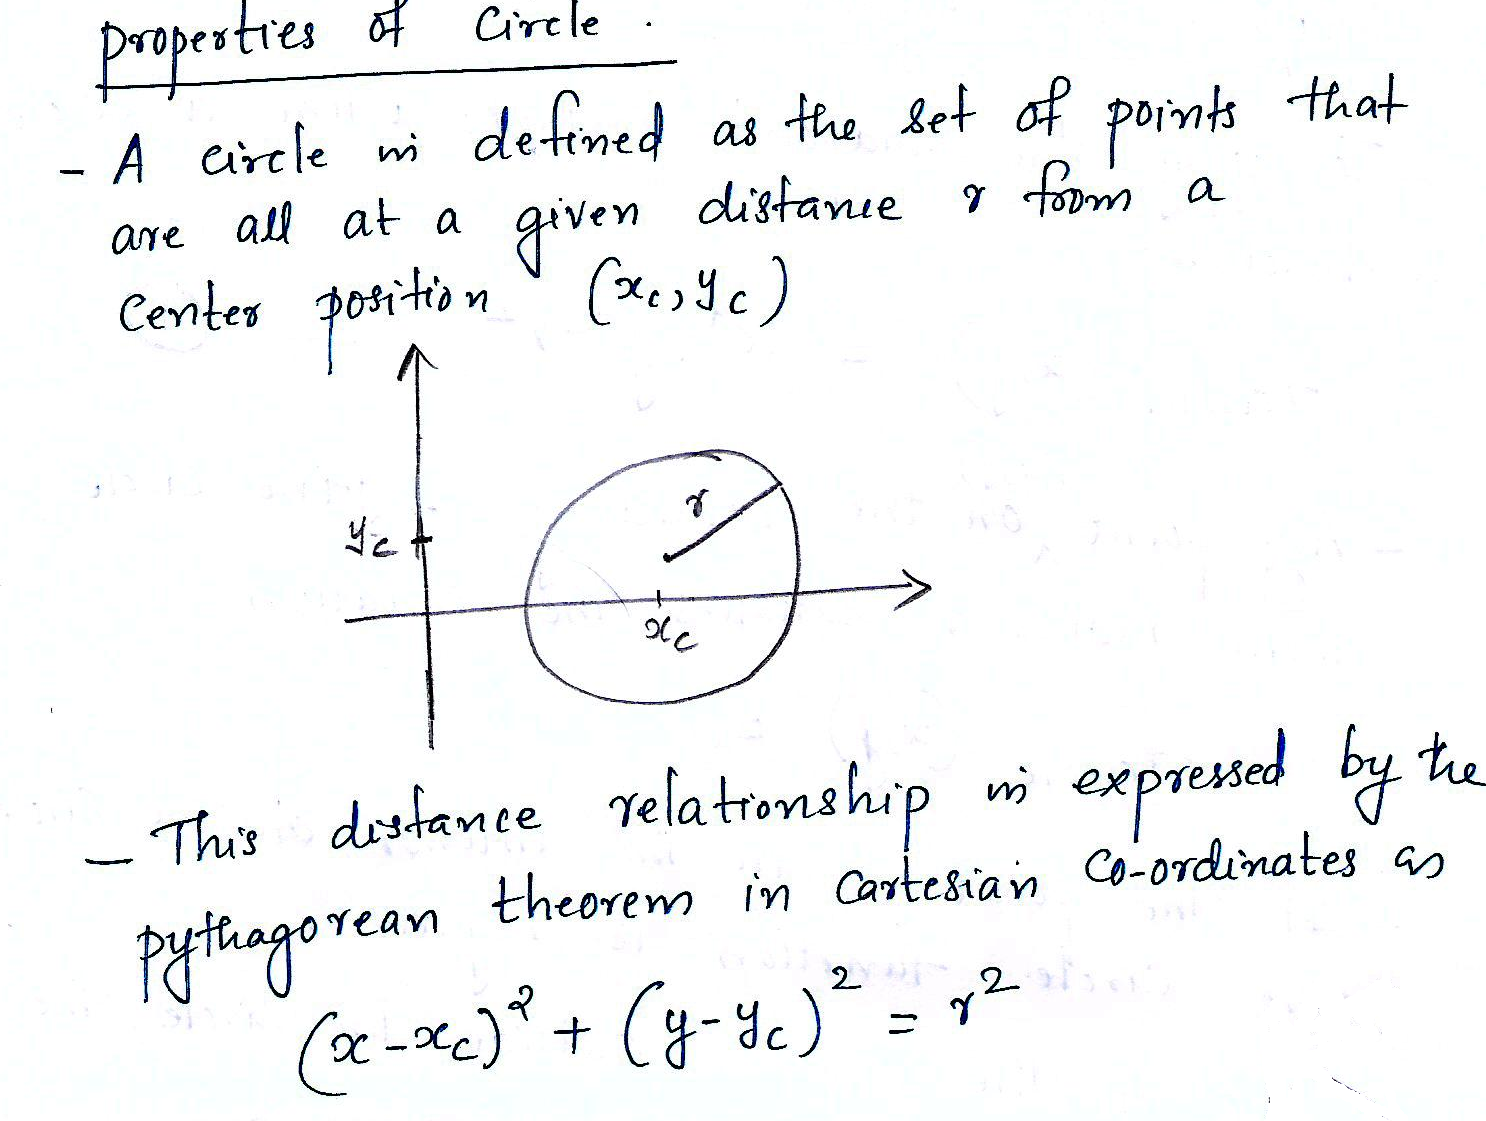 properties of Circle.
- A circle is defined as the set of points that
are all at a given distance r from a
Center position (xc, yc)
r
yc
xc
- This distance relationship is expressed by the
pythagorean theorem in Cartesian Co-ordinates as
(x - xc)² + (y - yc)² = r²